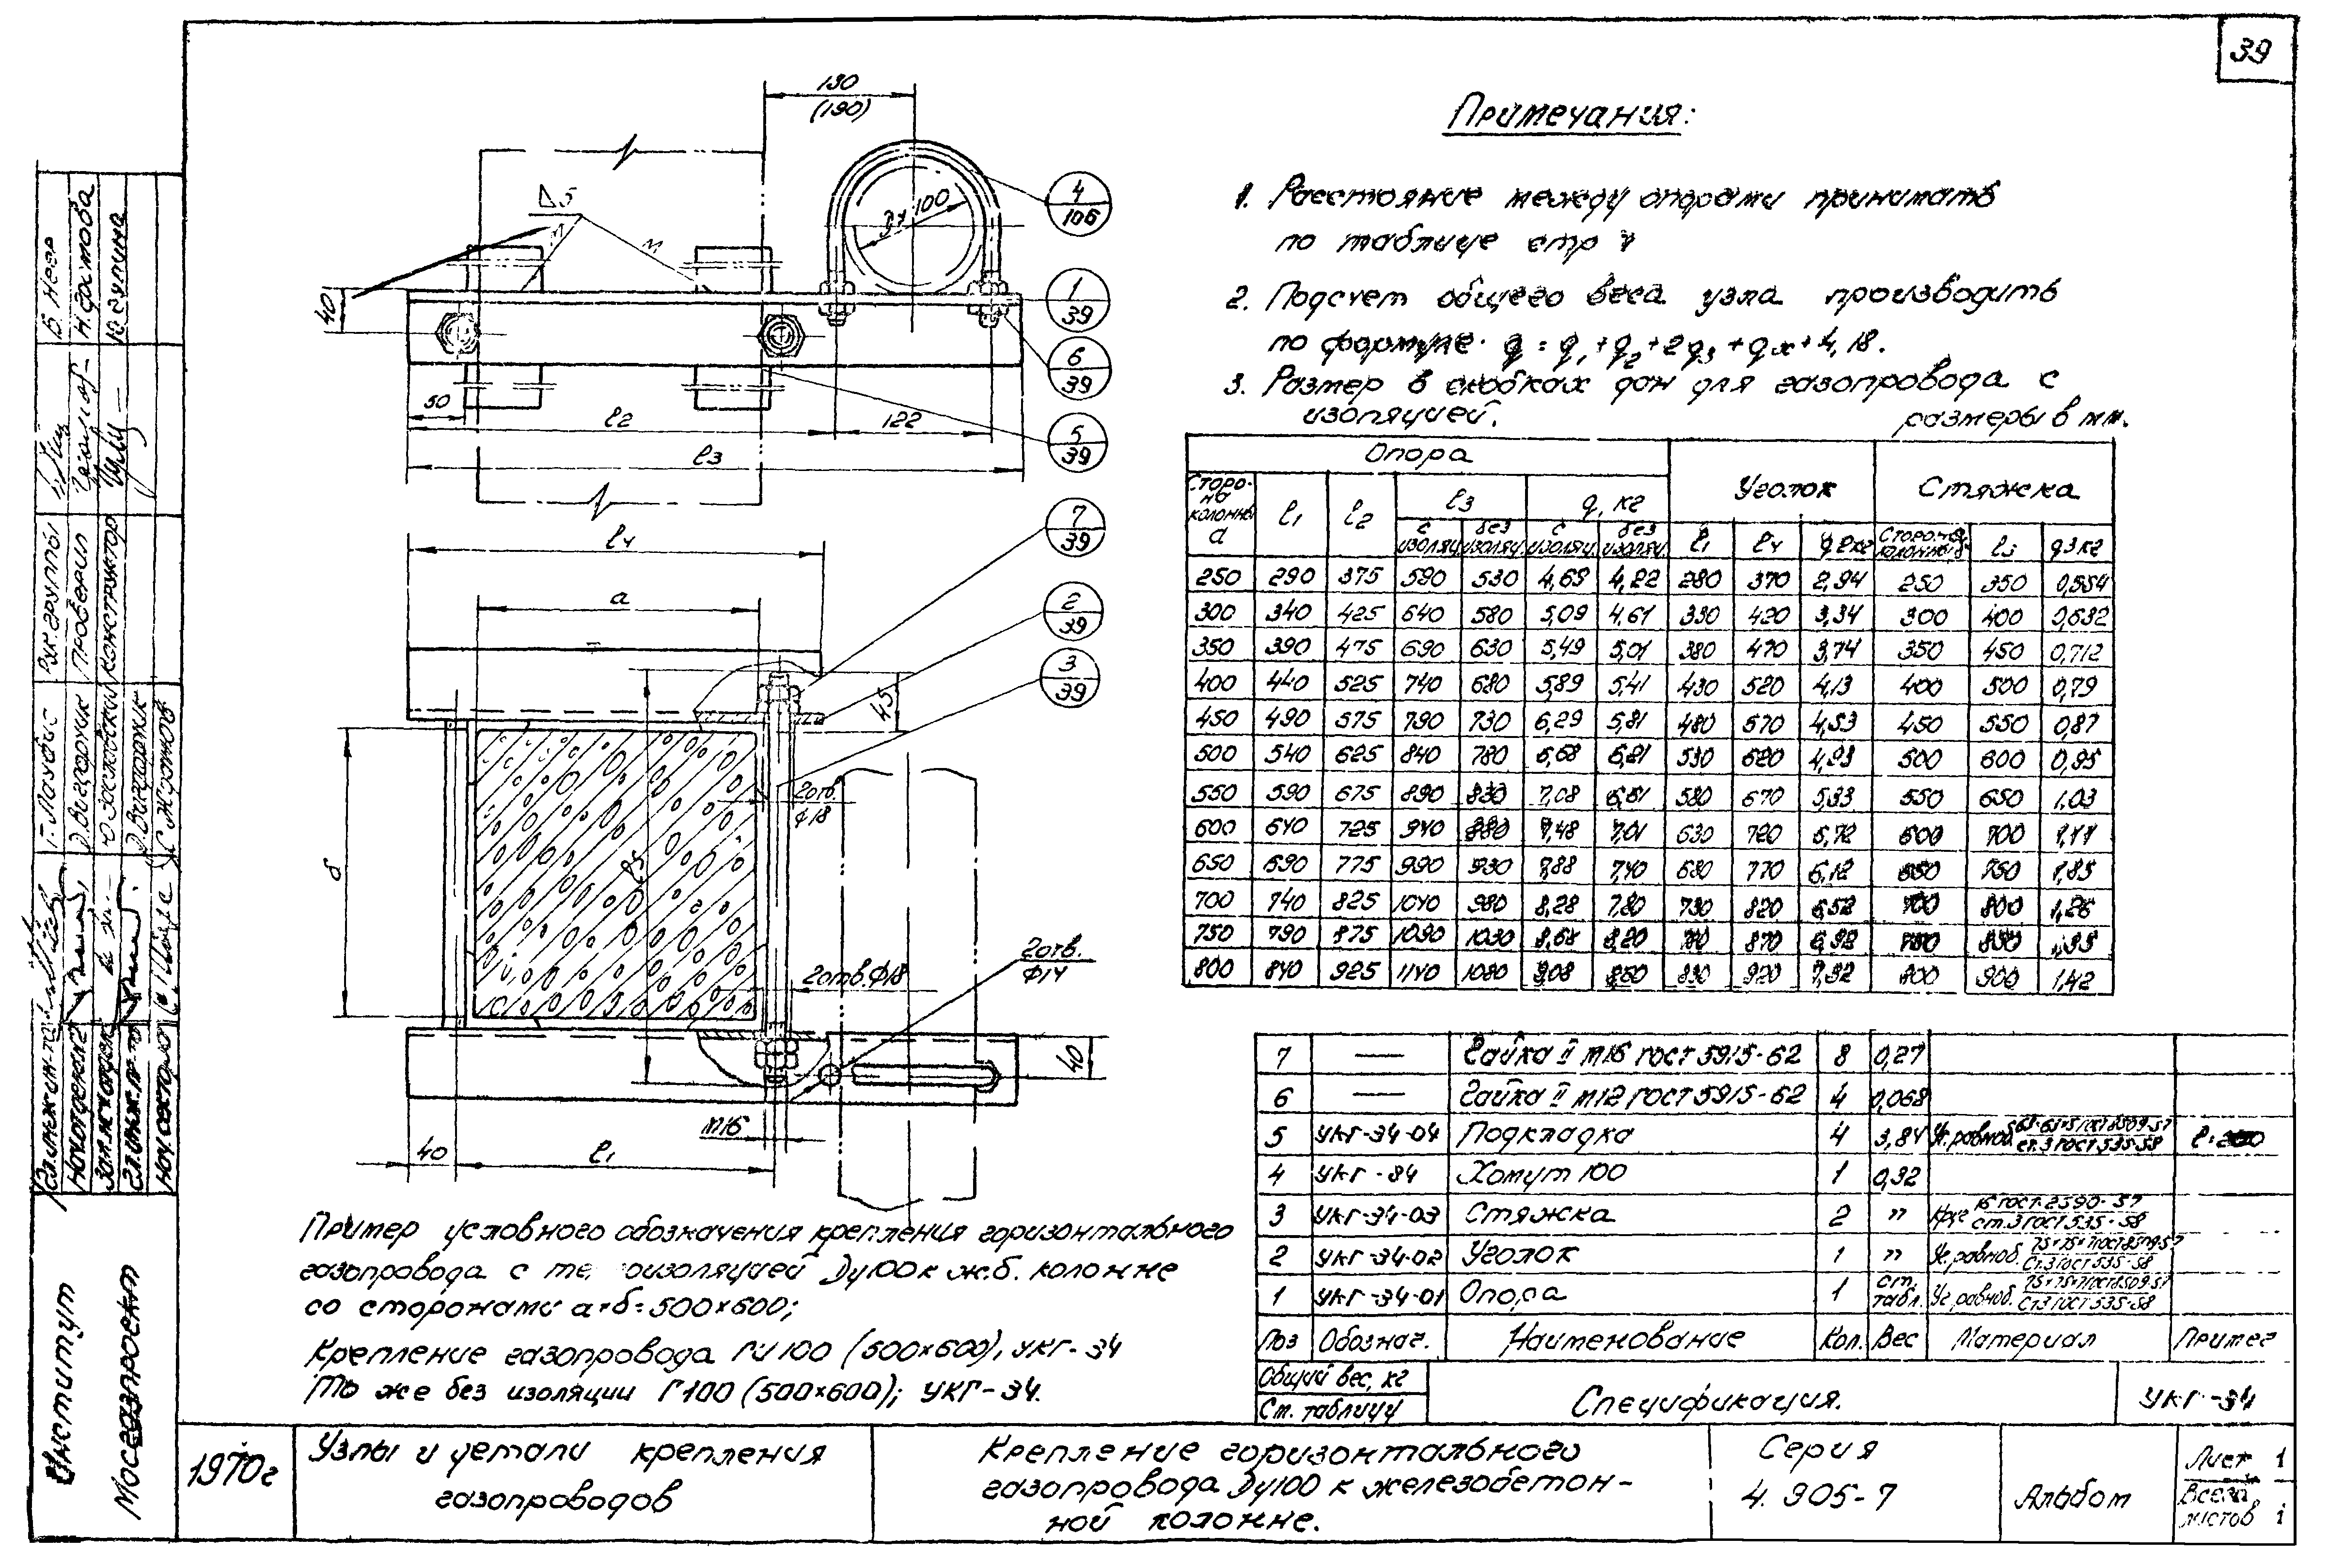 39
Примечания:
1. Расстояние между опорами принимать
по таблице стр
2. Подсчет общего веса узла производить
по формуле q = q1+q2+2q3+qх+4,18.
3. Размер в скобках дан для газопровода с
изоляцией.
размеры в мм.
130
(190)
Δ5
Ду 100
4
106
1
39
6
39
5
39
40
50
l2
122
l3
l4
7
39
а
2
39
3
39
45
2отв.
ф18
б
l5
2отв.ф18
2отв.
ф14
40
М16
40
l1
Опора
Уголок
Стяжка
Сторона колонны а
l1
l2
l3
q, кг
с изоляц.
без изоляц.
с изоляц.
без изоляц.
l1
l4
q2кг
Сторона колонны б
l5
q3кг
250 290 375 590 530 4,69 4,22 280 370 2,94 250 350 0,554
300 340 425 640 580 5,09 4,61 330 420 3,34 300 400 0,632
350 390 475 690 630 5,49 5,01 380 470 3,74 350 450 0,712
400 440 525 740 680 5,89 5,41 430 520 4,13 400 500 0,79
450 490 575 790 730 6,29 5,81 480 570 4,53 450 550 0,87
500 540 625 840 780 6,68 6,21 530 620 4,93 500 600 0,95
550 590 675 890 830 7,08 6,61 580 670 5,33 550 650 1,03
600 640 725 940 880 7,48 7,01 630 720 5,72 600 700
650 690 775 990 930 7,88 7,40 680 770 6,12 650 750
700 740 825 1040 980 8,28 7,80 730 820 6,52 700 800 1,26
750 790 875 1090 1030 8,68 8,20 780 870 6,92 750 850
800 840 925 1140 1080 9,08 830 920 800 900 1,42
7 — Гайка II М16 ГОСТ 5915-62 8 0,27
6 — Гайка II М12 ГОСТ 5915-62 4 0,068
5 УКГ-34-04 Подкладка 4 3,84 Уг.равноб. 63×63×5 ГОСТ 8509-57 ст.3 ГОСТ 535-58
4 УКГ-34 Хомут 100 1 0,32
3 УКГ-34-03 Стяжка 2 " Круг 16 ГОСТ 2590-57 ст.3 ГОСТ 535-58
2 УКГ-34-02 Уголок 1 " Уг.равноб. 75×75×7 ГОСТ 8509-57 Ст.3 ГОСТ 535-58
1 УКГ-34-01 Опора 1 ст. табл. Уг.равноб. 75×75×7 ГОСТ 8509-57 Ст.3 ГОСТ 535-58
Поз Обознач. Наименование Кол. Вес Материал Примеч
Общий вес, кг
Ст. таблицу
Спецификация.
УКГ-34
Пример условного обозначения крепления горизонтального
газопровода с изоляцией Ду100 к ж.б. колонне
со сторонами а×б=500×600;
Крепление газопровода ГИ 100 (500×600), УКГ-34
То же без изоляции Г 100 (500×600); УКГ-34.
1970г
Узлы и детали крепления
газопроводов
Крепление горизонтального
газопровода Ду100 к железобетон-
ной колонне.
Серия
4.905-7
Альбом
Лист 1
Всего
листов 1
Институт
Мосгазпроект
Рук.группы
Проверил
Конструктор